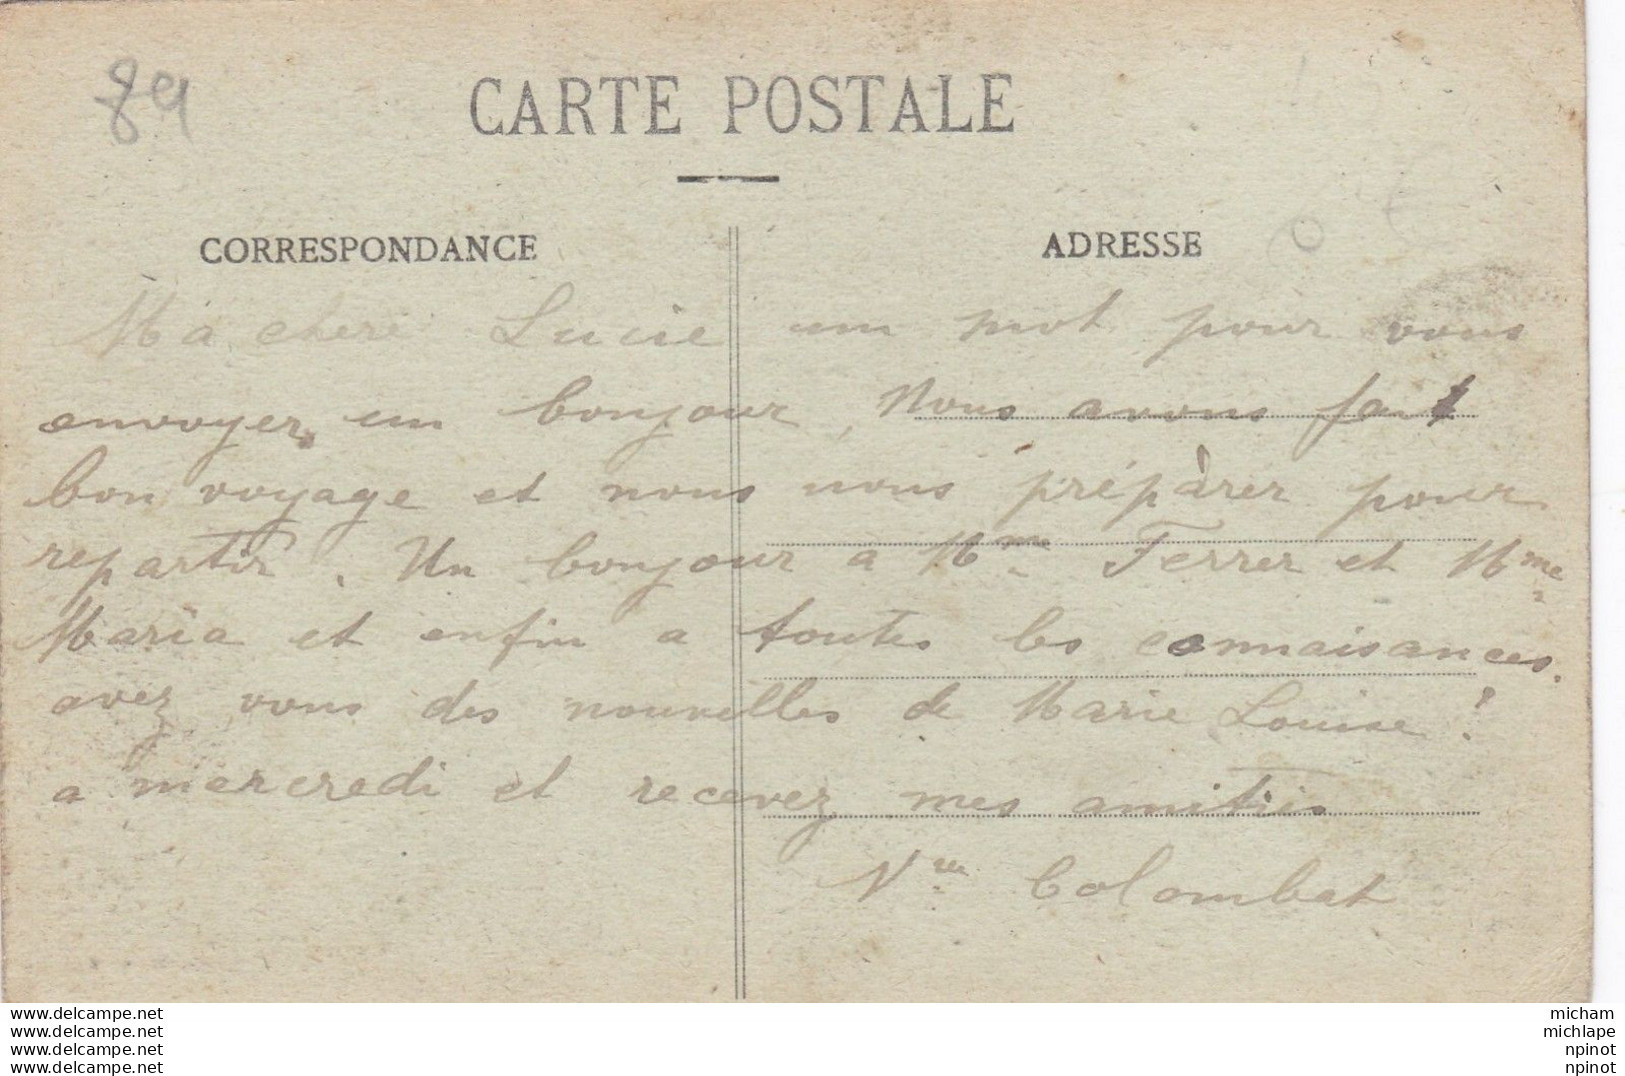 89
CARTE POSTALE
CORRESPONDANCE
ADRESSE
Ma chere Lucie un mot pour vous
envoyer un bonjour, Nous avons fait
bon voyage et nous nous préparer pour
repartir. Un bonjour à Mme Ferrer et Mme
Maria et enfin a toutes les connaisances.
avez vous des nouvelles de Marie Louise?
a mercredi et recevez mes amitiés
Colombat
www.delcampe.net
www.delcampe.net
www.delcampe.net
www.delcampe.net
micham
michlape
npinot
npinot